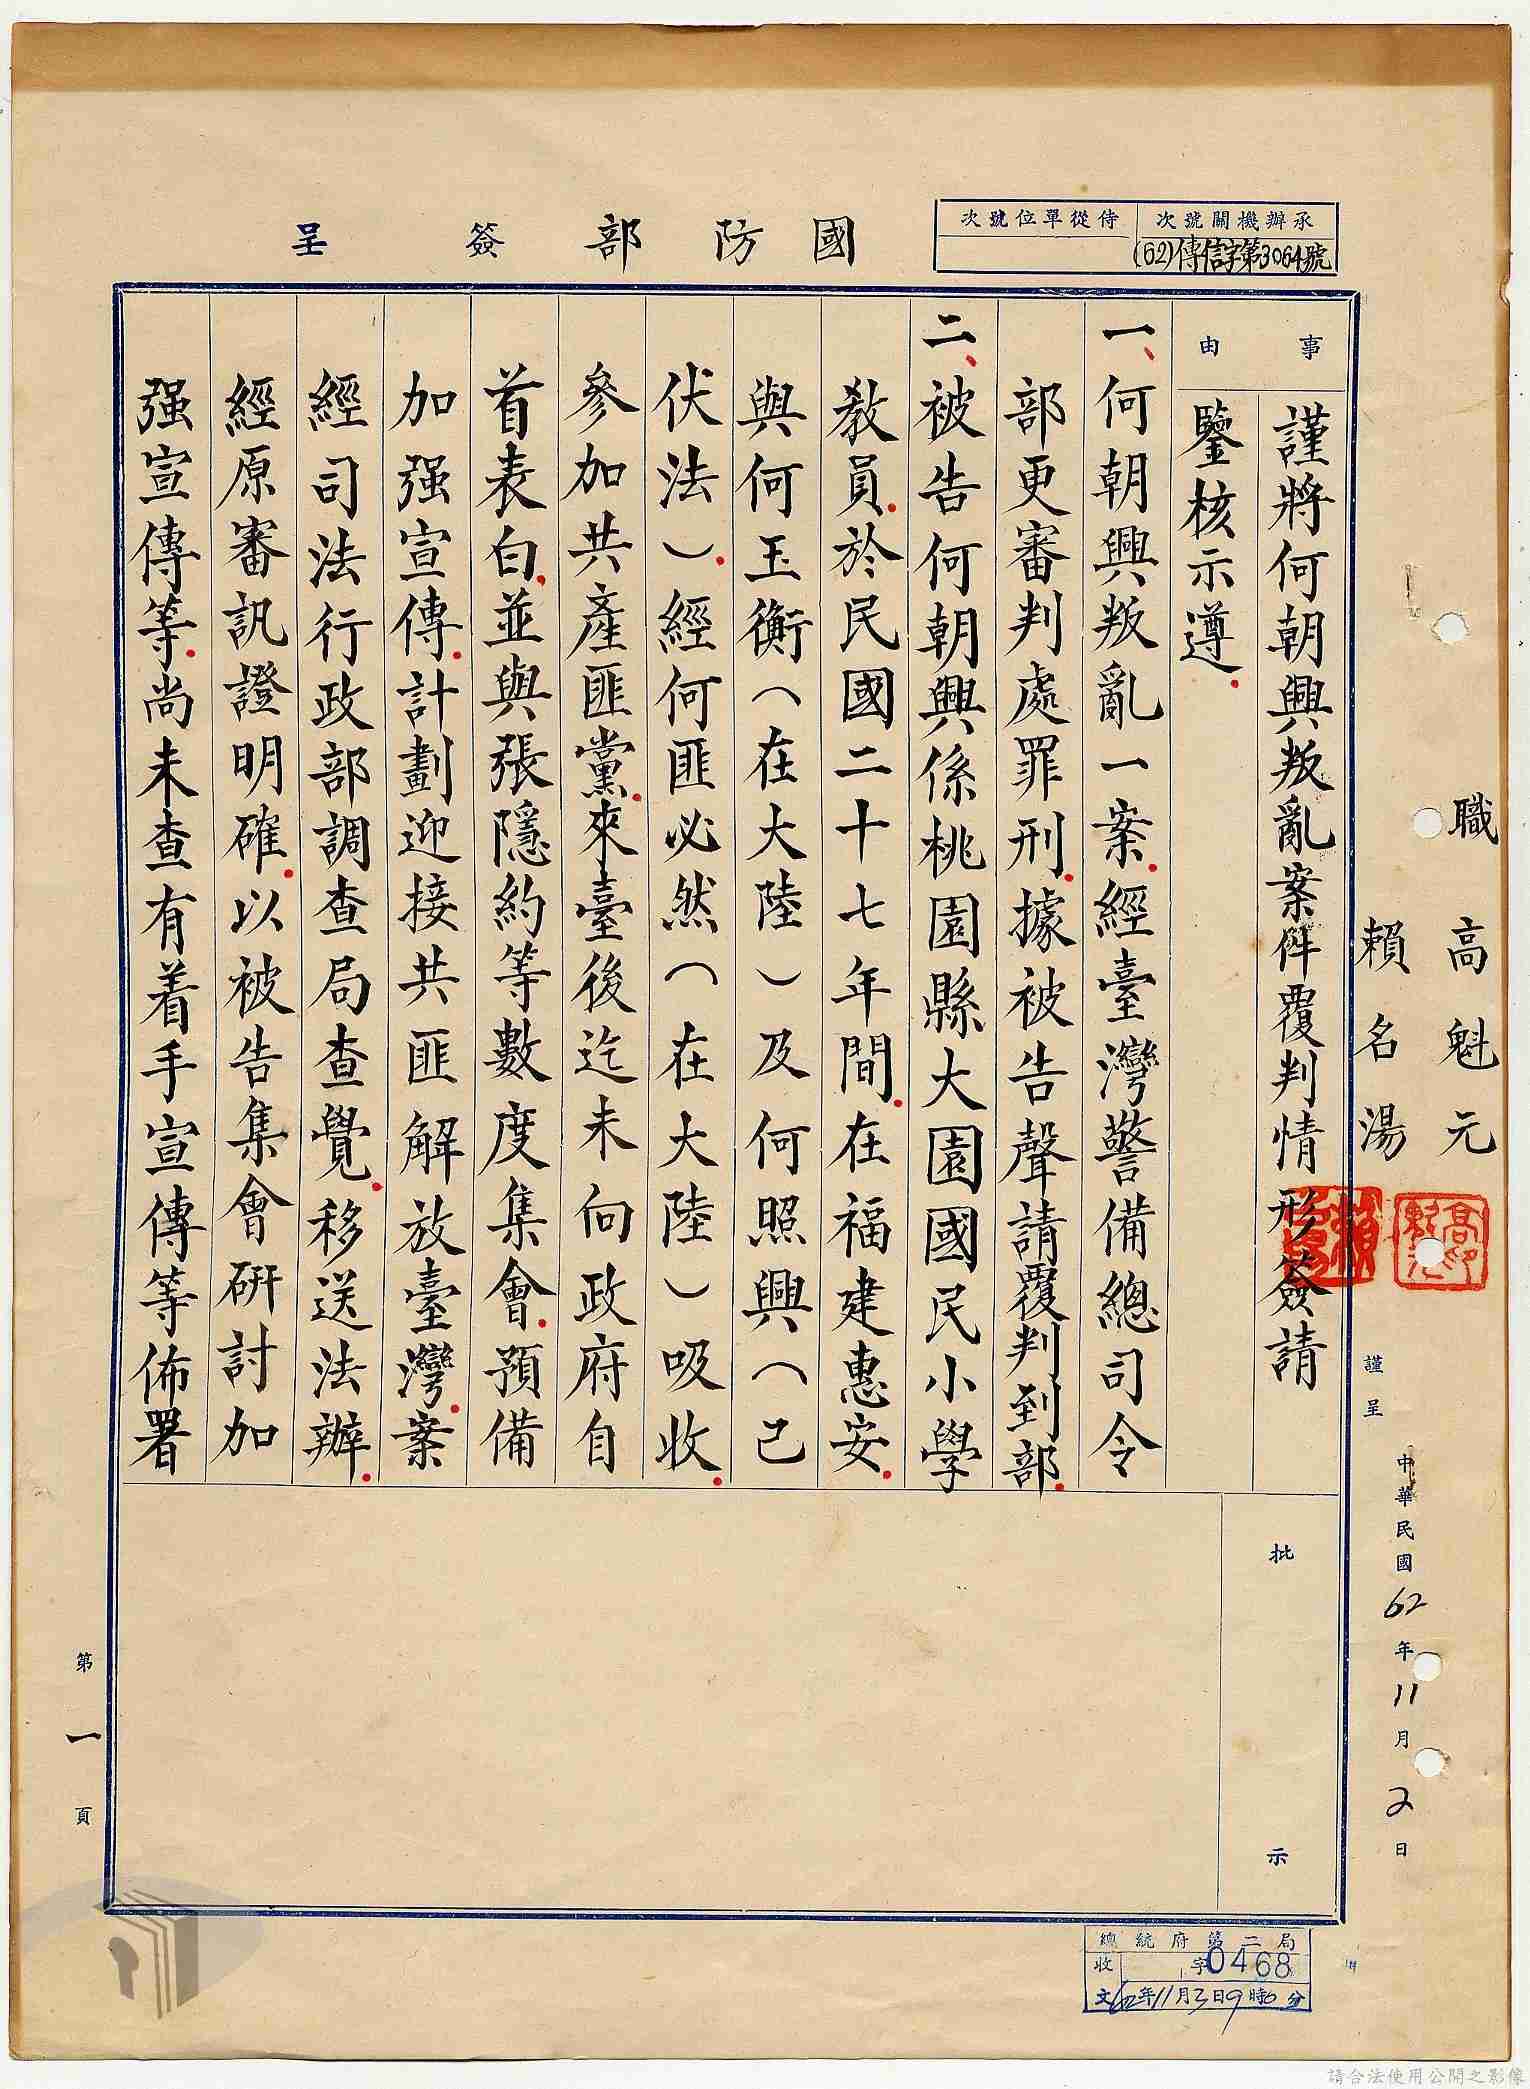 國防部簽呈
承辦機關號次
(62)傳信字第3064號
侍從單位號次
職 高魁元
賴名湯
謹呈
中華民國62年11月2日
事由
謹將何朝興叛亂案件覆判情形簽請
鑒核示遵.
一、何朝興叛亂一案.經臺灣警備總司令
部更審判處罪刑.據被告聲請覆判到部.
二、被告何朝興係桃園縣大園國民小學
教員.於民國二十七年間.在福建惠安.
與何玉衡(在大陸)及何照興(已
伏法).經何匪必然(在大陸)吸收.
參加共產匪黨.來臺後迄未向政府自
首表白.並與張隱約等數度集會.預備
加强宣傳.計劃迎接共匪解放臺灣.案
經司法行政部調查局查覺.移送法辦.
經原審訊證明確.以被告集會研討加
强宣傳等.尚未查有着手宣傳等佈署
批示
第一頁
總統府第二局
收 字0468
文 62年11月3日9時0分
請合法使用公開之影像